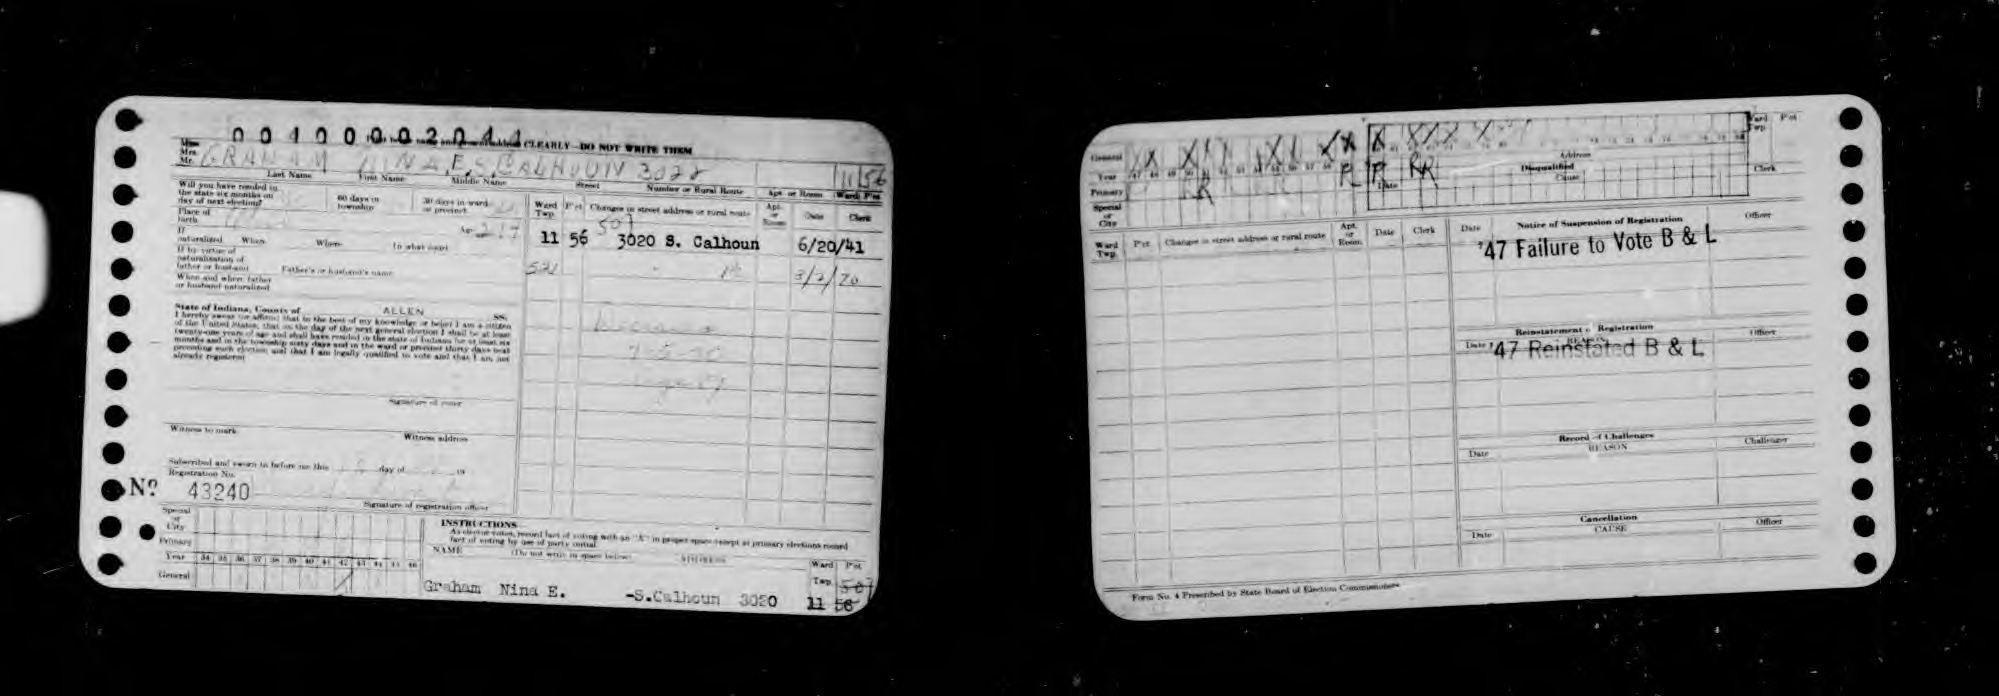 00100002044
CLEARLY—DO NOT WRITE THEM
Miss
Mrs.
Mr. GRAHAM NINA E. S. CALHOUN 3022 11 56
Last Name First Name Middle Name Street Number or Rural Route Apt. or Room Ward Pct
Will you have resided in
the state six months on
day of next election? 60 days in
township 30 days in ward
or precinct
Place of
birth Age 21+
If
naturalized When Where In what court
If by virtue of
naturalization of
father or husband Father's or husband's name
When and where father
or husband naturalized
State of Indiana, County of ALLEN SS.
I hereby swear (or affirm) that to the best of my knowledge or belief I am a citizen
of the United States, that on the day of the next general election I shall be at least
twenty-one years of age and shall have resided in the state of Indiana for at least six
months and in the township sixty days and in the ward or precinct thirty days next
preceding such election, and that I am legally qualified to vote and that I am not
already registered
Signature of voter
Witness to mark
Witness address
Subscribed and sworn to before me this day of 19
Registration No.
Nº 43240
Signature of registration officer
Ward
Twp. Pct Changes in street address or rural route Apt.
or
Room Date Clerk
507
11 56 3020 S. Calhoun 6/20/41
521 " 3/2/70
Deceased
Special
or
City
Primary
Year 34 35 36 37 38 39 40 41 42 43 44 45 46
General
INSTRUCTIONS
As elector votes, record fact of voting with an "X" in proper space except at primary elections record
fact of voting by use of party initial.
NAME (Do not write in space below) ADDRESS
Ward Pct
Twp. 507
Graham Nina E. -S.Calhoun 3020 11 56
General X X X X X X X X X X X X X
Year 47 48 49 50
Primary R R R R R
Special
or
City
Address
Disqualified
Date Cause Clerk
Ward
Twp. Pct
Ward
Twp. Pct Changes in street address or rural route Apt.
or
Room Date Clerk
Date Notice of Suspension of Registration Officer
'47 Failure to Vote B & L
Reinstatement of Registration
Date REASON Officer
'47 Reinstated B & L
Record of Challenges
Date REASON Challenger
Cancellation
Date CAUSE Officer
Form No. 4 Prescribed by State Board of Election Commissioners